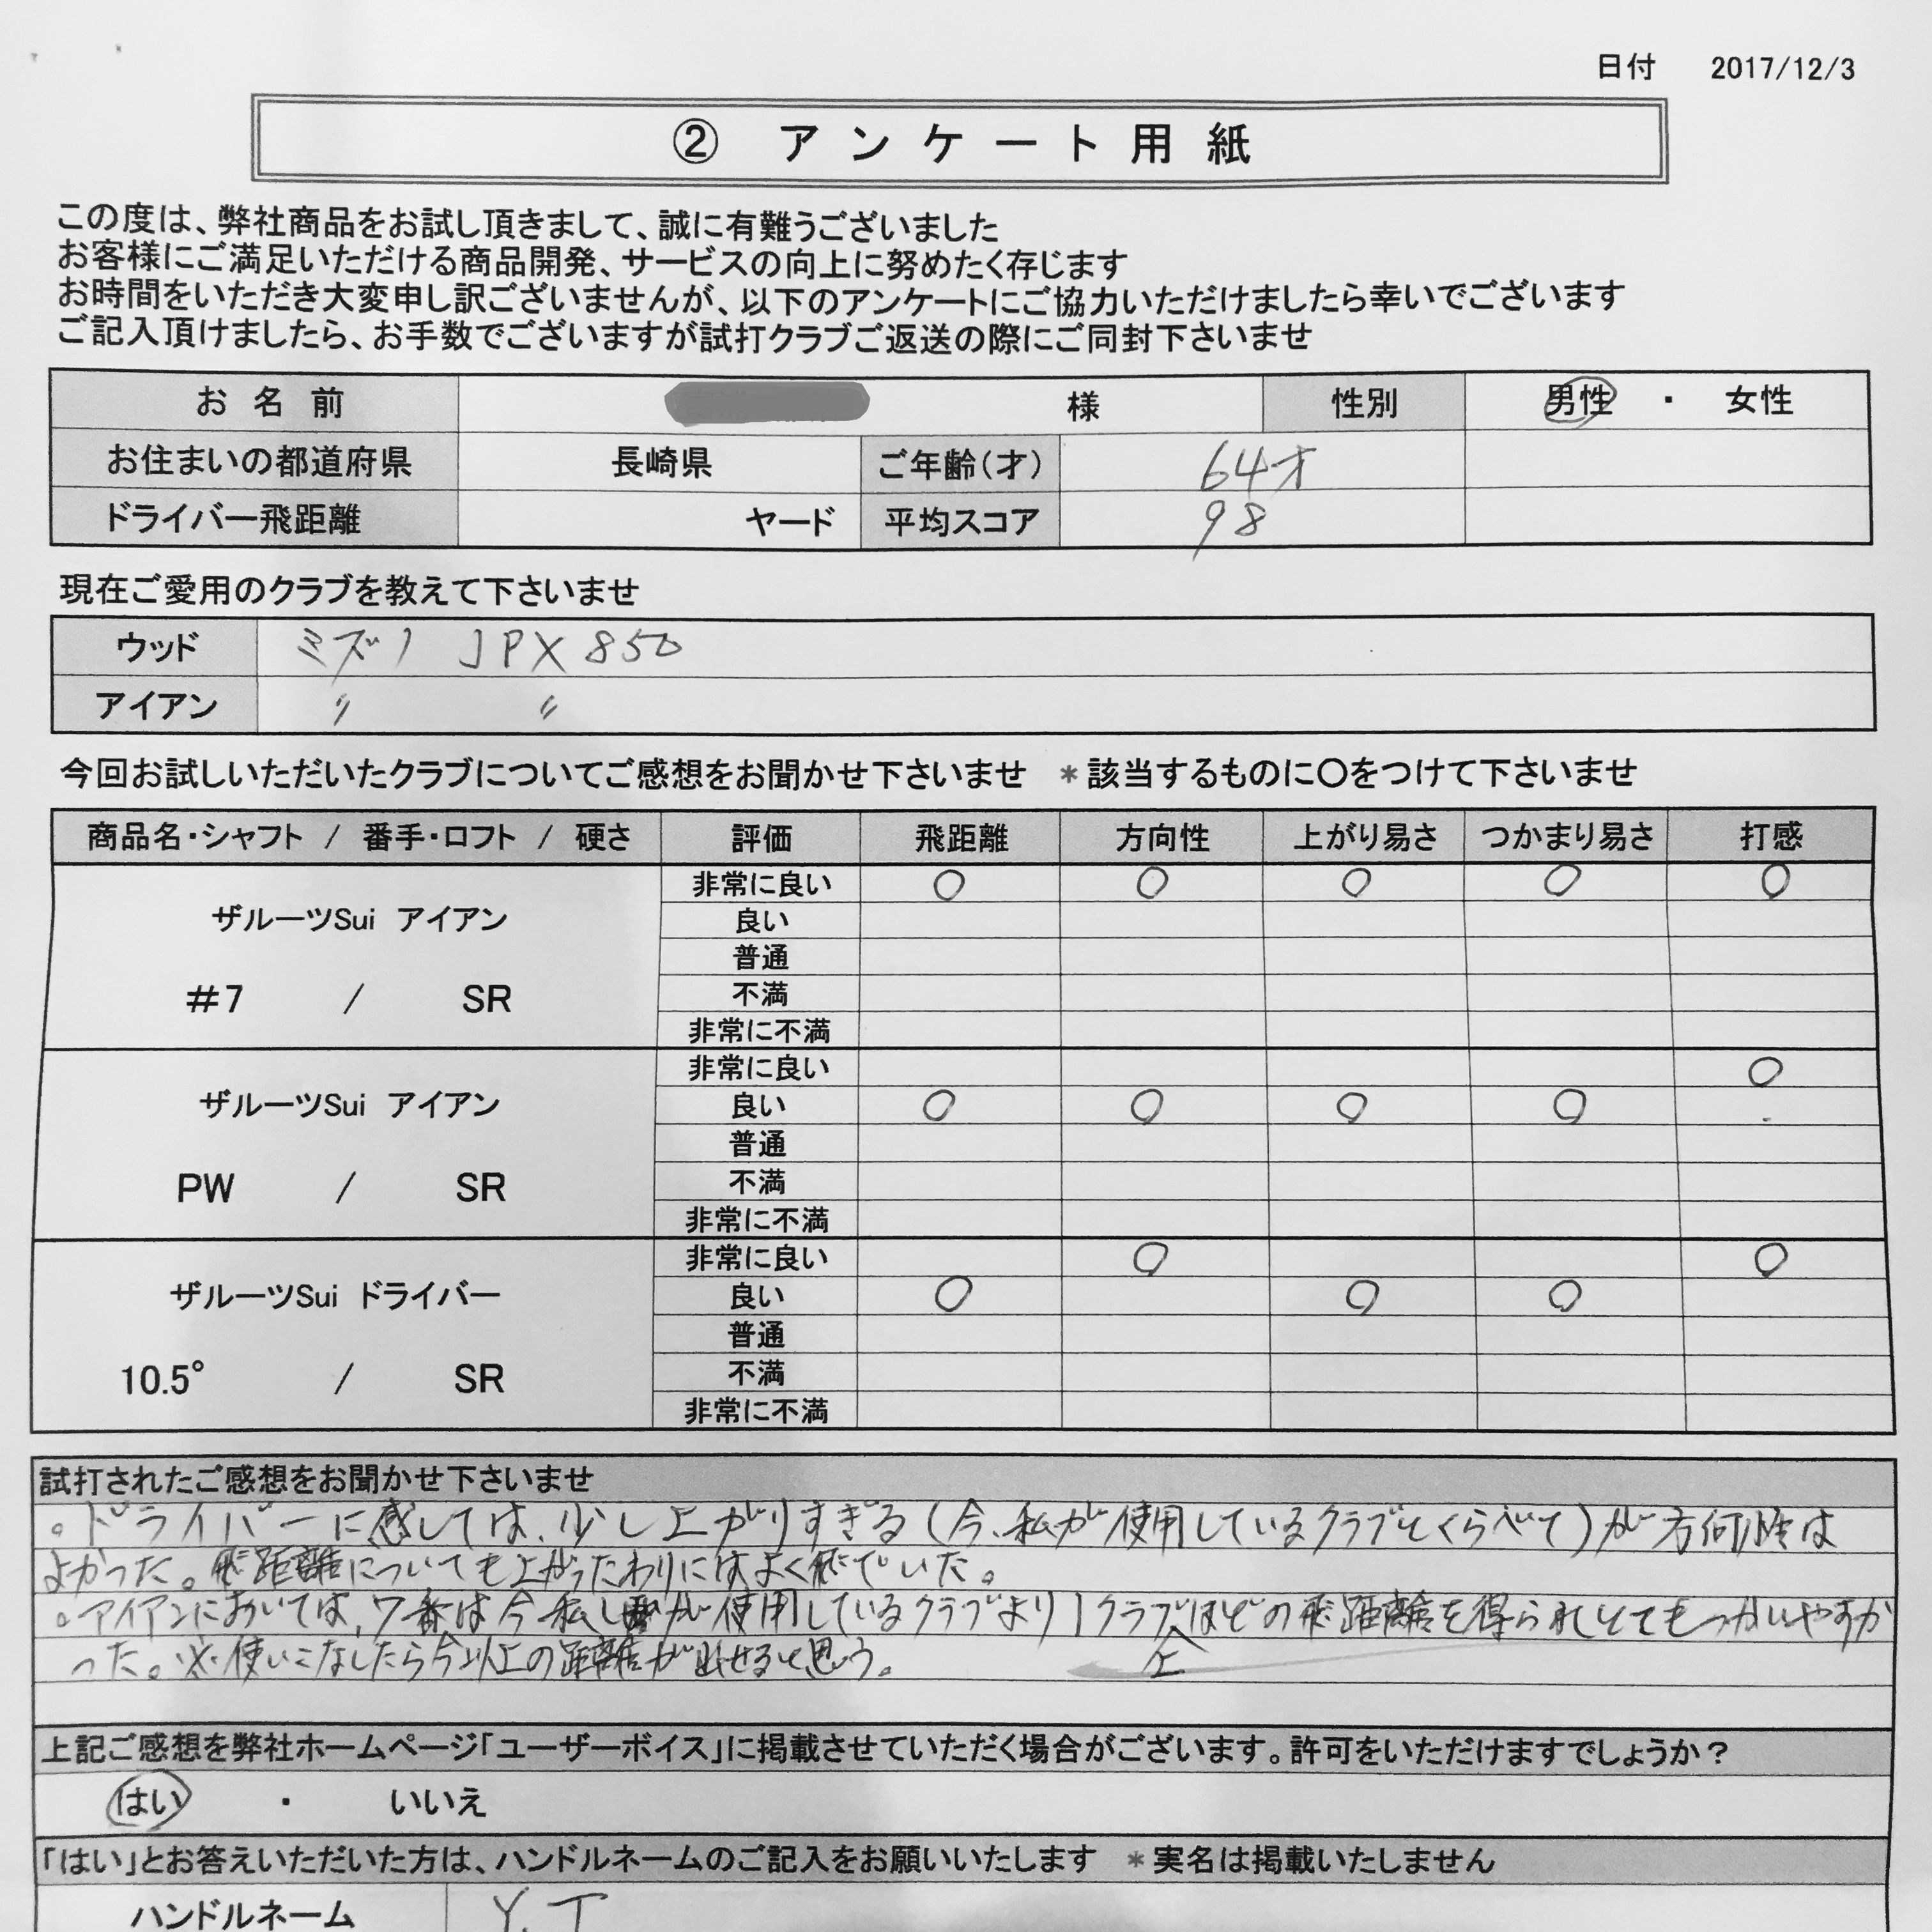 日付 2017/12/3
② アンケート用紙
この度は、弊社商品をお試し頂きまして、誠に有難うございました
お客様にご満足いただける商品開発、サービスの向上に努めたく存じます
お時間をいただき大変申し訳ございませんが、以下のアンケートにご協力いただけましたら幸いでございます
ご記入頂けましたら、お手数でございますが試打クラブご返送の際にご同封下さいませ
お名前 様 性別 男性 ・ 女性
お住まいの都道府県 長崎県 ご年齢(才) 64才
ドライバー飛距離 ヤード 平均スコア 98
現在ご愛用のクラブを教えて下さいませ
ウッド ミズノ JPX850
アイアン 〃 〃
今回お試しいただいたクラブについてご感想をお聞かせ下さいませ *該当するものに〇をつけて下さいませ
商品名・シャフト / 番手・ロフト / 硬さ 評価 飛距離 方向性 上がり易さ つかまり易さ 打感
ザルーツSui アイアン
#7 / SR
非常に良い 〇 〇 〇 〇 〇
良い
普通
不満
非常に不満
ザルーツSui アイアン
PW / SR
非常に良い 〇
良い 〇 〇 〇 〇
普通
不満
非常に不満
ザルーツSui ドライバー
10.5° / SR
非常に良い 〇 〇
良い 〇 〇 〇
普通
不満
非常に不満
試打されたご感想をお聞かせ下さいませ
。ドライバーに感しては、少し上がりすぎる(今、私が使用しているクラブとくらべて)が方向性は
よかった。飛距離についても上がったわりにはよく飛でいた。
。アイアンにおいては、7番は今私が使用しているクラブより1クラブ上ほどの飛距離を得られとてもつかいやすか
った。※使いこなしたら今以上の距離が出せると思う。
上記ご感想を弊社ホームページ「ユーザーボイス」に掲載させていただく場合がございます。許可をいただけますでしょうか?
はい ・ いいえ
「はい」とお答えいただいた方は、ハンドルネームのご記入をお願いいたします *実名は掲載いたしません
ハンドルネーム Y.T